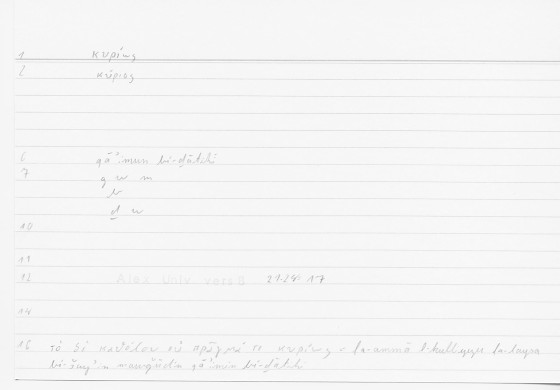 1 κυρίως
2 κύριος
6 qāʾimun bi-ḏātihī
7 q w m
b
ḏ w
10
11
12 Alex Univ vers B 21-24: 17
14
15 τὸ δὲ καθόλου οὐ κυρίως fa-ammā l-kullīyu fa-laysa
bi-šayʾin mawǧūdin qāʾimin bi-ḏātihī